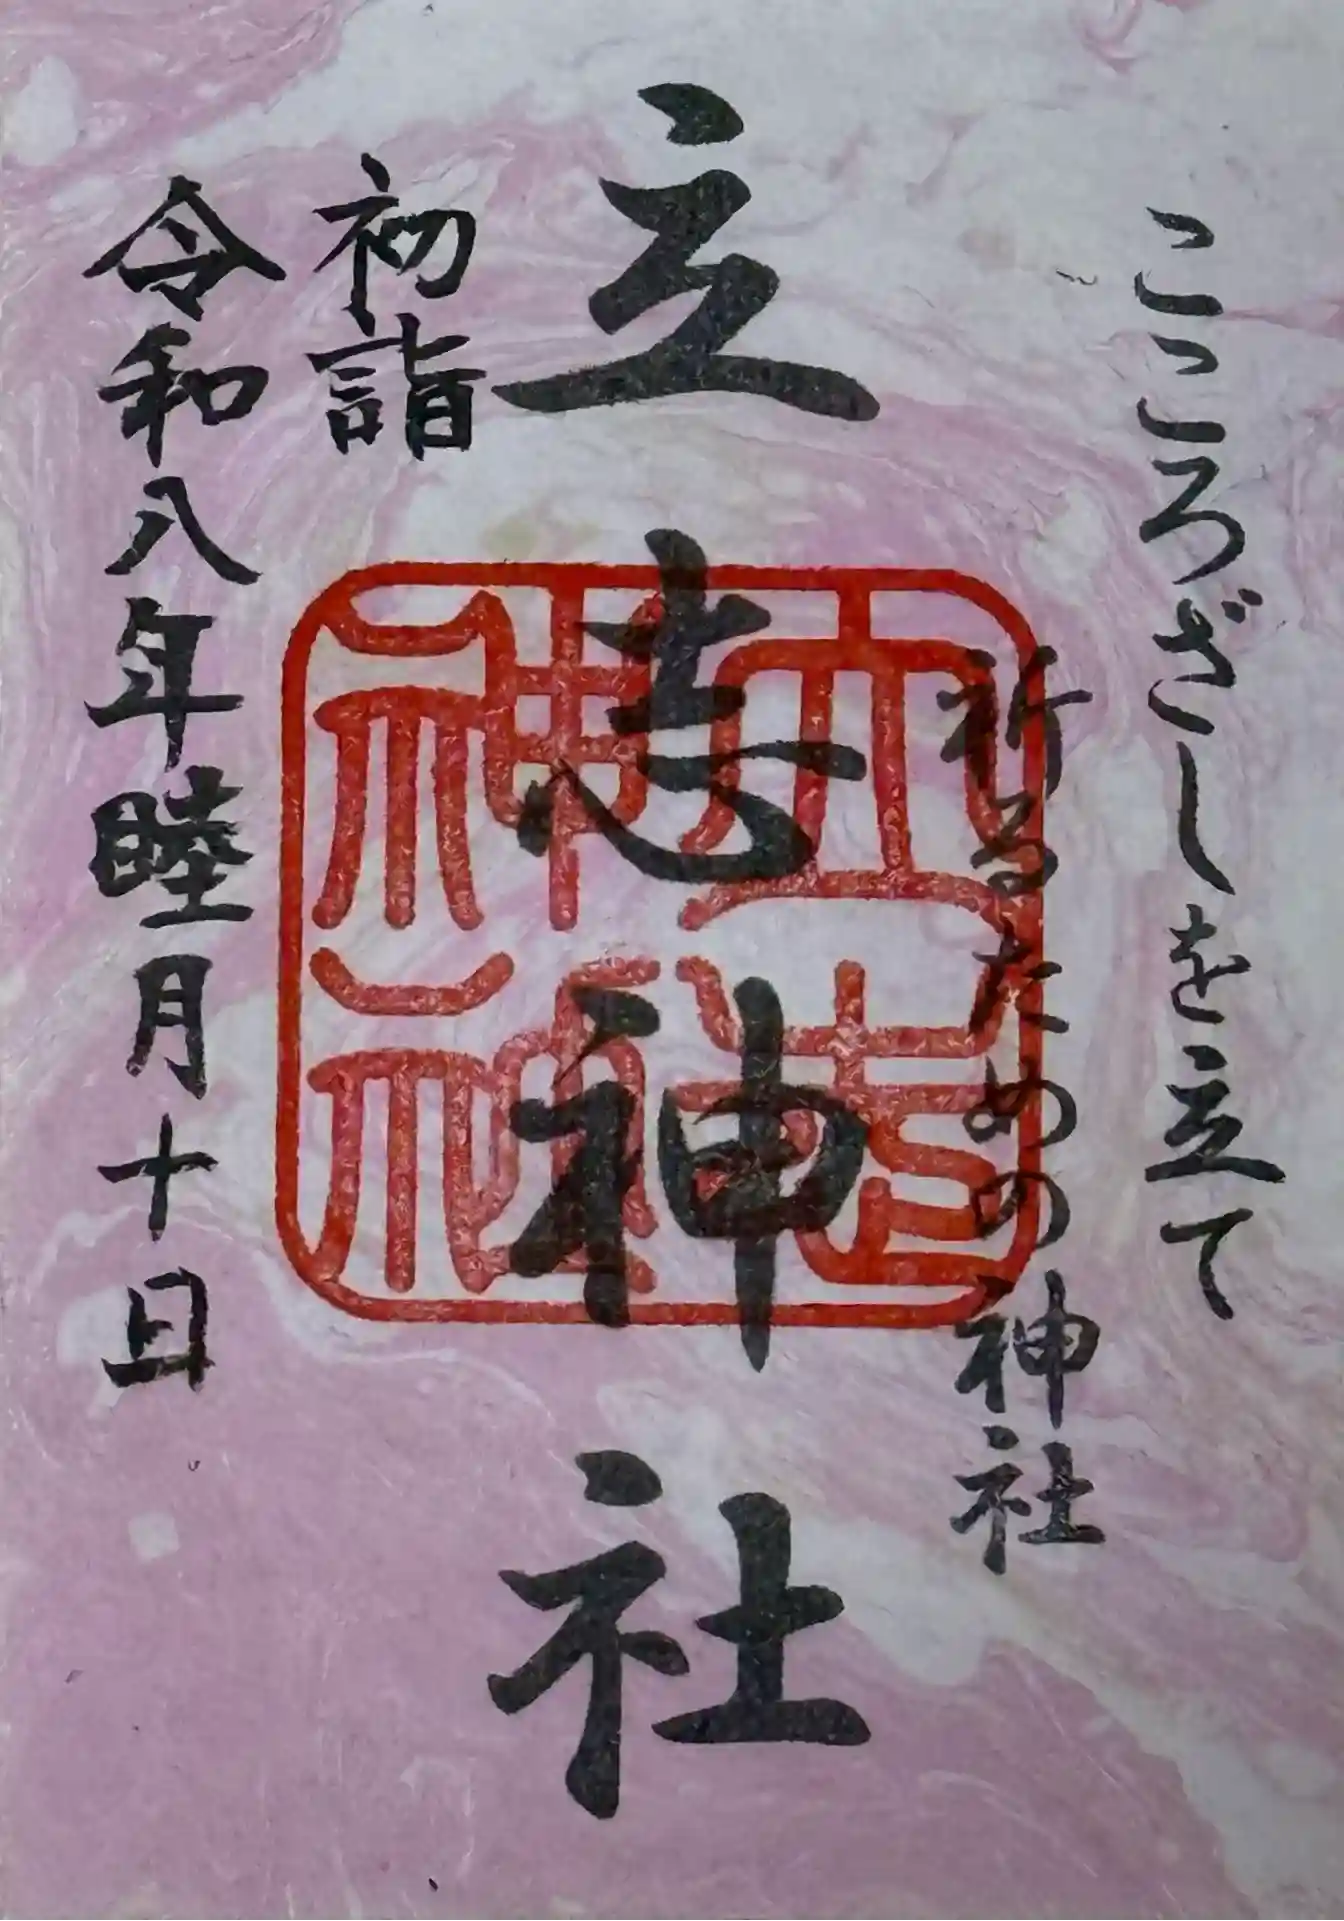 こころざしを立て
祈るための神社
立志神社
立志神社
初詣
令和八年睦月十日